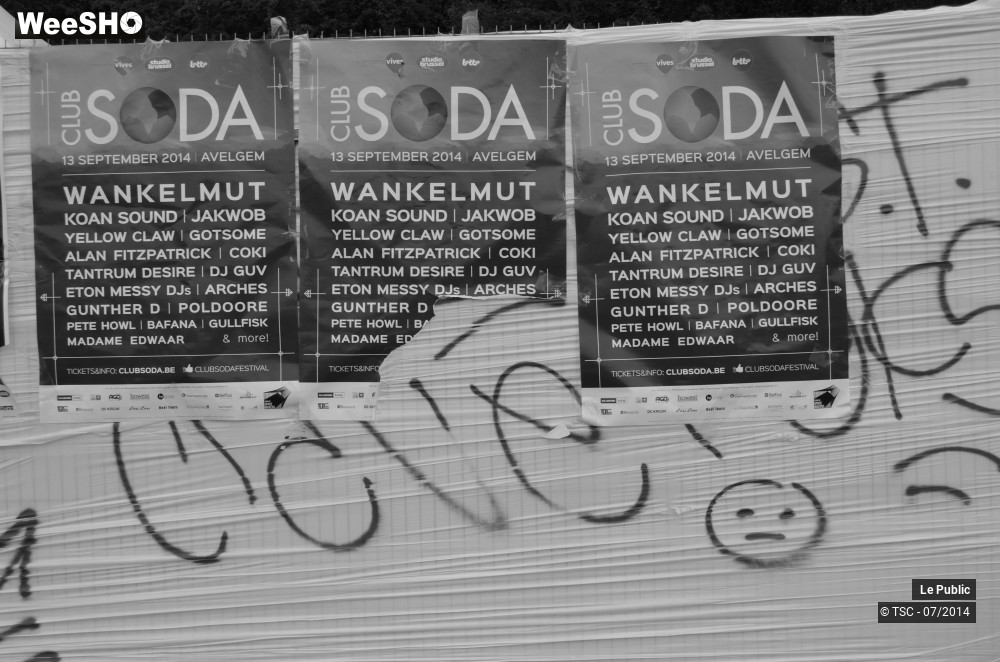 WeeSHO
vives studio brussel
CLUB SODA
13 SEPTEMBER 2014 | AVELGEM
WANKELMUT
KOAN SOUND | JAKWOB
YELLOW CLAW | GOTSOME
ALAN FITZPATRICK | COKI
TANTRUM DESIRE | DJ GUV
ETON MESSY DJs | ARCHES
GUNTHER D | POLDOORE
PETE HOWL | BAFANA | GULLFISK
MADAME EDWAAR & more!
TICKETS&INFO: CLUBSODA.BE CLUBSODAFESTIVAL
vives studio brussel
CLUB SODA
13 SEPTEMBER 2014 | AVELGEM
WANKELMUT
KOAN SOUND | JAKWOB
YELLOW CLAW | GOTSOME
ALAN FITZPATRICK | COKI
TANTRUM DESIRE | DJ GUV
ETON MESSY DJs | ARCHES
GUNTHER D
PETE HOWL | BA
MADAME ED
TICKETS&INFO:
vives studio brussel
CLUB SODA
13 SEPTEMBER 2014 | AVELGEM
WANKELMUT
KOAN SOUND | JAKWOB
YELLOW CLAW | GOTSOME
ALAN FITZPATRICK | COKI
TANTRUM DESIRE | DJ GUV
ETON MESSY DJs | ARCHES
GUNTHER D | POLDOORE
PETE HOWL | BAFANA | GULLFISK
MADAME EDWAAR & more!
TICKETS&INFO: CLUBSODA.BE CLUBSODAFESTIVAL
Le Public
© TSC - 07/2014